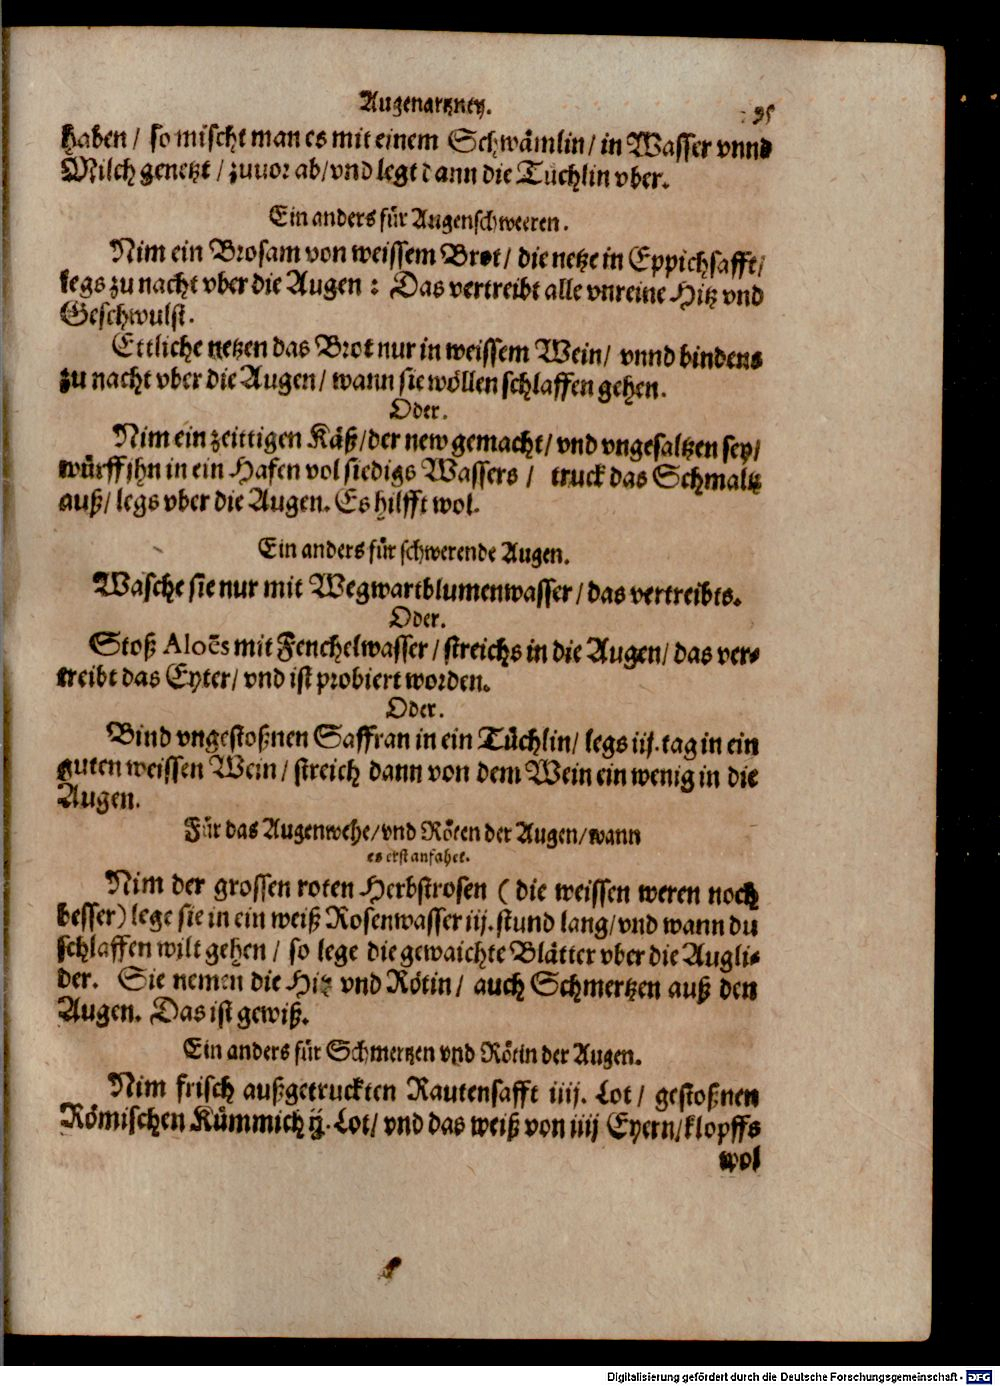 Augenartzney. 35
haben / so mischt man es mit einem Schwämlin / in Wasser vnnd
Milch genetzt / zuuor ab / vnd legt dann die Tüchlin vber.
Ein anders für Augenschweeren.
Nim ein Brosam von weissem Brot / die netze in Eppichsafft /
legs zu nacht vber die Augen : Das vertreibt alle vnreine Hitz vnd
Geschwulst.
Ettliche netzen das Brot nur in weissem Wein / vnnd bindens
zu nacht vber die Augen / wann sie wöllen schlaffen gehen.
Oder.
Nim ein zeittigen Käß / der new gemacht / vnd vngesaltzen sey /
würff jhn in ein Hafen vol siedigs Wassers / truck das Schmaltz
auß / legs vber die Augen. Es hilfft wol.
Ein anders für schwerende Augen.
Wasche sie nur mit Wegwartblumenwasser / das vertreibts.
Oder.
Stoß Aloës mit Fenchelwasser / streichs in die Augen / das ver-
treibt das Eyter / vnd ist probiert worden.
Oder.
Bind vngestoßnen Saffran in ein Tüchlin / legs iij. tag in ein
guten weissen Wein / streich dann von dem Wein ein wenig in die
Augen.
Für das Augenwehe / vnd Röten der Augen / wann
es erst anfahet.
Nim der grossen roten Herbstrosen ( die weissen weren noch
besser ) lege sie in ein weiß Rosenwasser iij. stund lang / vnd wann du
schlaffen wilt gehen / so lege die gewaichte Blätter vber die Augli-
der. Sie nemen die Hitz vnd Rötin / auch Schmertzen auß den
Augen. Das ist gewiß.
Ein anders für Schmertzen vnd Rötin der Augen.
Nim frisch außgetruckten Rautensafft iiij. Lot / gestoßnen
Römischen Kümmich ij. Lot / vnd das weiß von iiij Eyern / klopffs
wol
Digitalisierung gefördert durch die Deutsche Forschungsgemeinschaft - DFG